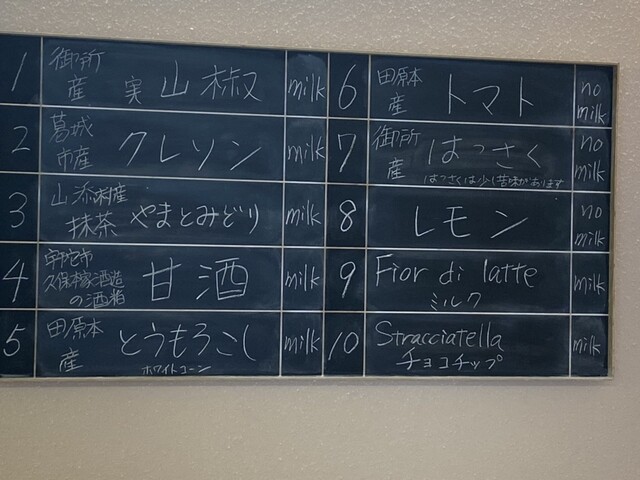 1 御所産 実山椒 milk
2 葛城市産 クレソン milk
3 山添村産 抹茶 やまとみどり milk
4 宇陀市久保本家酒造の酒粕 甘酒 milk
5 田原本産 とうもろこし milk
ホワイトコーン
6 田原本産 トマト no milk
7 御所産 はっさく no milk
はっさくは少し苦味があります
8 レモン no milk
9 Fior di latte milk
ミルク
10 Stracciatella milk
チョコチップ